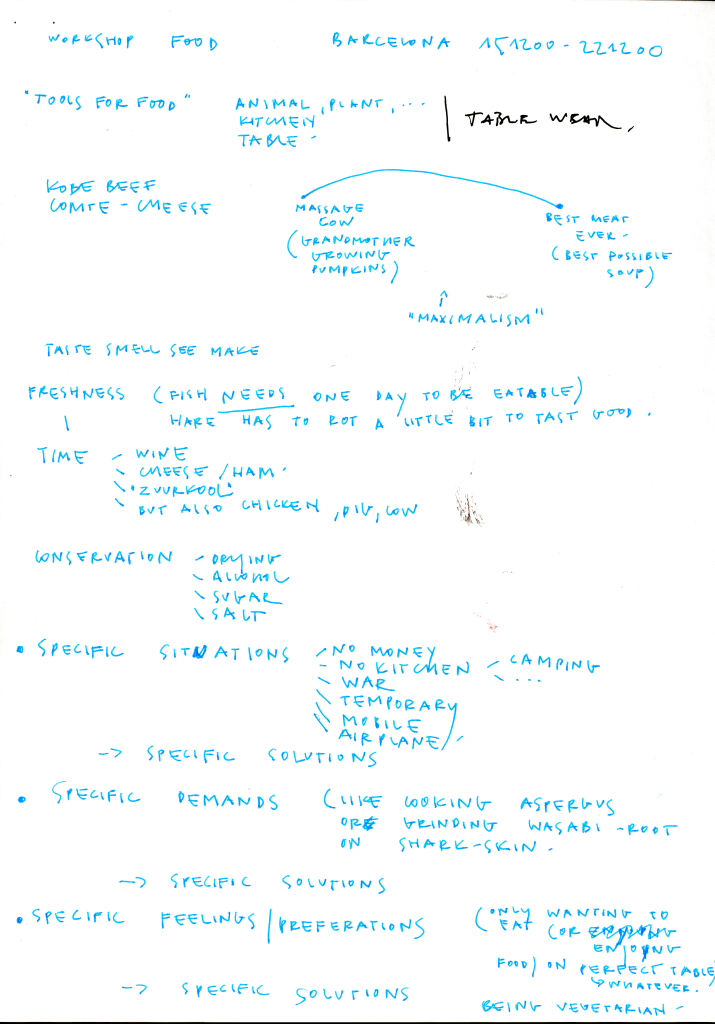 WORKSHOP FOOD BARCELONA 151200-221200
"TOOLS FOR FOOD" ANIMAL, PLANT, ...
KITCHEN
TABLE -
TABLE WEAR.
KOBE BEEF
COMTE - CHEESE
MASSAGE
COW
(GRANDMOTHER
GROWING
PUMPKINS)
BEST MEAT
EVER -
(BEST POSSIBLE
SOUP)
↑
"MAXIMALISM"
TASTE SMELL SEE MAKE
FRESHNESS (FISH NEEDS ONE DAY TO BE EATABLE)
HARE HAS TO ROT A LITTLE BIT TO TAST GOOD.
TIME - WINE
- CHEESE / HAM.
- "ZUURKOOL"
- BUT ALSO CHICKEN, PIG, COW
CONSERVATION - DRYING
- ALCOHOL
- SUGAR
- SALT
• SPECIFIC SITUATIONS - NO MONEY
- NO KITCHEN - CAMPING
- ...
- WAR
- TEMPORARY
- MOBILE
AIRPLANE/-
-> SPECIFIC SOLUTIONS
• SPECIFIC DEMANDS (LIKE COOKING ASPERGUS
OR GRINDING WASABI-ROOT
ON SHARK-SKIN.
-> SPECIFIC SOLUTIONS
• SPECIFIC FEELINGS / PREFERATIONS (ONLY WANTING TO
EAT (OR
ENJOYING
FOOD) ON PERFECT TABLE)
↳ WHATEVER.
-> SPECIFIC SOLUTIONS
BEING VEGETARIAN -